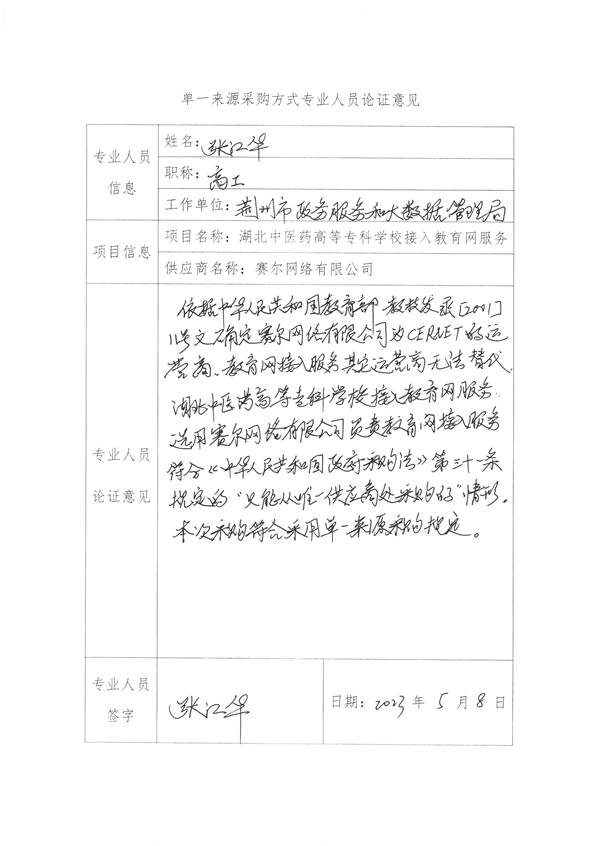 单一来源采购方式专业人员论证意见
专业人员
信息
姓名：张江华
职称：高工
工作单位：荆州市政务服务和大数据管理局
项目信息
项目名称：湖北中医药高等专科学校接入教育网服务
供应商名称：赛尔网络有限公司
专业人员
论证意见
依据中华人民共和国教育部 教技发函[2001]
1号文确定赛尔网络有限公司为CERNET的运
营商、教育网接入服务其它运营商无法替代.
湖北中医药高等专科学校接入教育网服务.
选用赛尔网络有限公司负责教育网接入服务
符合《中华人民共和国政府采购法》第三十一条
规定的“只能从唯一供应商处采购的”情形，
本次采购符合采用单一来源采购的规定。
专业人员
签字
张江华
日期：2023 年 5 月 8 日